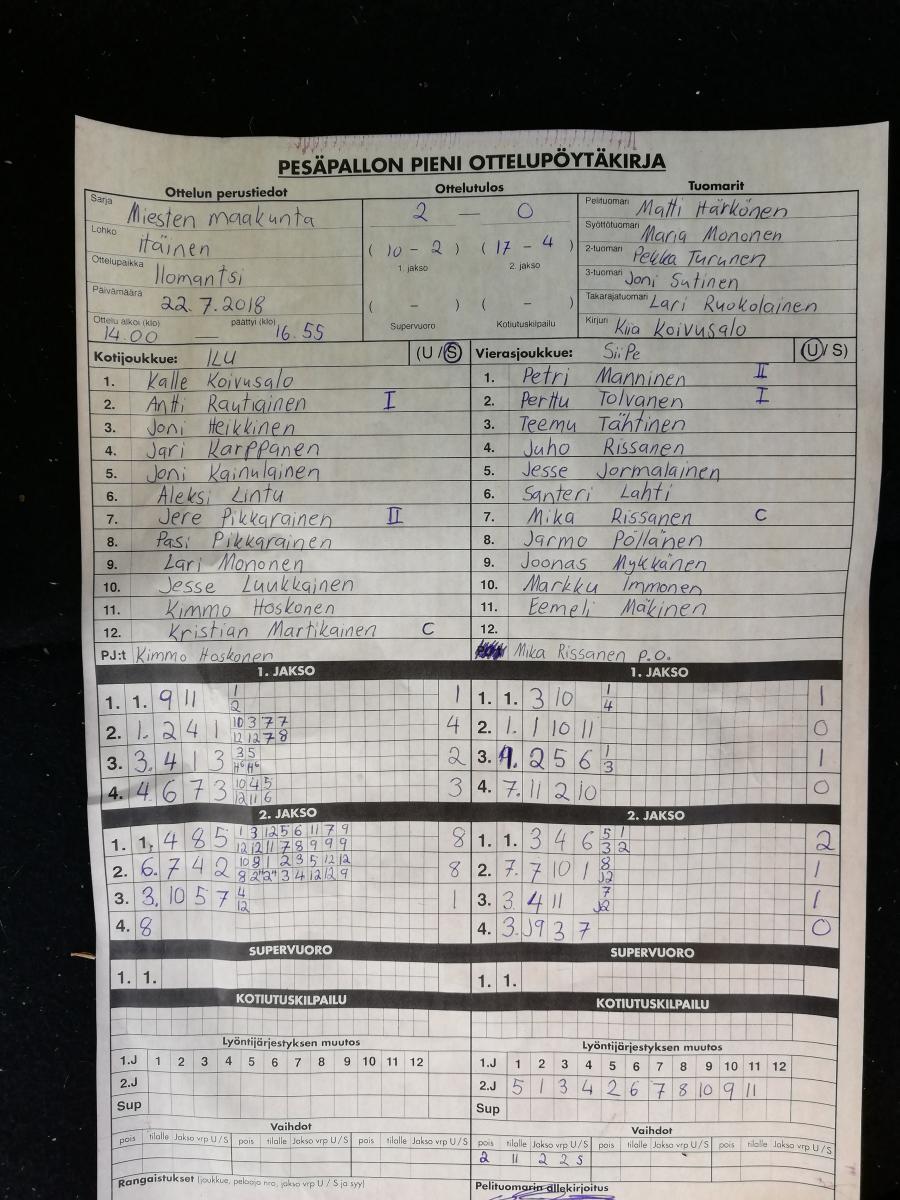 PESÄPALLON PIENI OTTELUPÖYTÄKIRJA
Ottelun perustiedot
Sarja Miesten maakunta
Lohko Itäinen
Ottelupaikka Ilomantsi
Päivämäärä 22.7.2018
Ottelu alkoi (klo) päättyi (klo)
14.00 — 16.55
Ottelutulos
2 — 0
( 10 - 2 ) ( 17 - 4 )
1. jakso 2. jakso
( - ) ( - )
Supervuoro Kotiutuskilpailu
Tuomarit
Pelituomari Matti Härkönen
Syöttötuomari Maria Mononen
2-tuomari Pekka Turunen
3-tuomari Joni Sutinen
Takarajatuomari Lari Ruokolainen
Kirjuri Kiia Koivusalo
Kotijoukkue: ILU (U/S)
1. Kalle Koivusalo
2. Antti Rautiainen I
3. Joni Heikkinen
4. Jari Karppanen
5. Joni Kainulainen
6. Aleksi Lintu
7. Jere Pikkarainen II
8. Pasi Pikkarainen
9. Lari Mononen
10. Jesse Luukkainen
11. Kimmo Hoskonen
12. Kristian Martikainen C
PJ:t Kimmo Hoskonen
Vierasjoukkue: SiiPe (U/S)
1. Petri Manninen II
2. Perttu Tolvanen I
3. Teemu Tähtinen
4. Juho Rissanen
5. Jesse Jormalainen
6. Santeri Lahti
7. Mika Rissanen C
8. Jarmo Pöllänen
9. Joonas Nykkänen
10. Markku Immonen
11. Eemeli Mäkinen
12.
Mika Rissanen p.o.
1. JAKSO
1. 1. 9 11 1
2
1
2. 1. 2 4 1 10 3 7 7
12 12 7 8
4
3. 3. 4 1 3 3 5
2
4. 4 6 7 3 10 4 5
12 11 6
3
1. JAKSO
1. 1. 3 10 1
4
1
2. 1. 1 10 11 0
3. 2 5 6 1
3
1
4. 7. 11 2 10 0
2. JAKSO
1. 1. 4 8 5 1 3 12 5 6 11 7 9
12 12 11 7 8 9 9 9
8
2. 6. 7 4 2 10 8 1 2 3 5 12 12
8
3. 3. 10 5 7 4
12
1
4. 8
2. JAKSO
1. 1. 3 4 6 5 1
3 2
2
2. 7. 7 10 1 8
J2
1
3. 3. 4 11 7
J2
1
4. 3. J9 3 7 0
SUPERVUORO
1. 1.
SUPERVUORO
1. 1.
KOTIUTUSKILPAILU
KOTIUTUSKILPAILU
Lyöntijärjestyksen muutos
1.J 1 2 3 4 5 6 7 8 9 10 11 12
2.J
Sup
Lyöntijärjestyksen muutos
1.J 1 2 3 4 5 6 7 8 9 10 11 12
2.J 5 1 3 4 2 6 7 8 10 9 11
Sup
Vaihdot
pois tilalle Jakso vrp U/S pois tilalle Jakso vrp U/S pois tilalle Jakso vrp U/S
Vaihdot
pois tilalle Jakso vrp U/S pois tilalle Jakso vrp U/S pois tilalle Jakso vrp U/S
2 11 2 2 S
Rangaistukset (joukkue, pelaaja nro, jakso vrp U / S ja syy)
Pelituomarin allekirjoitus